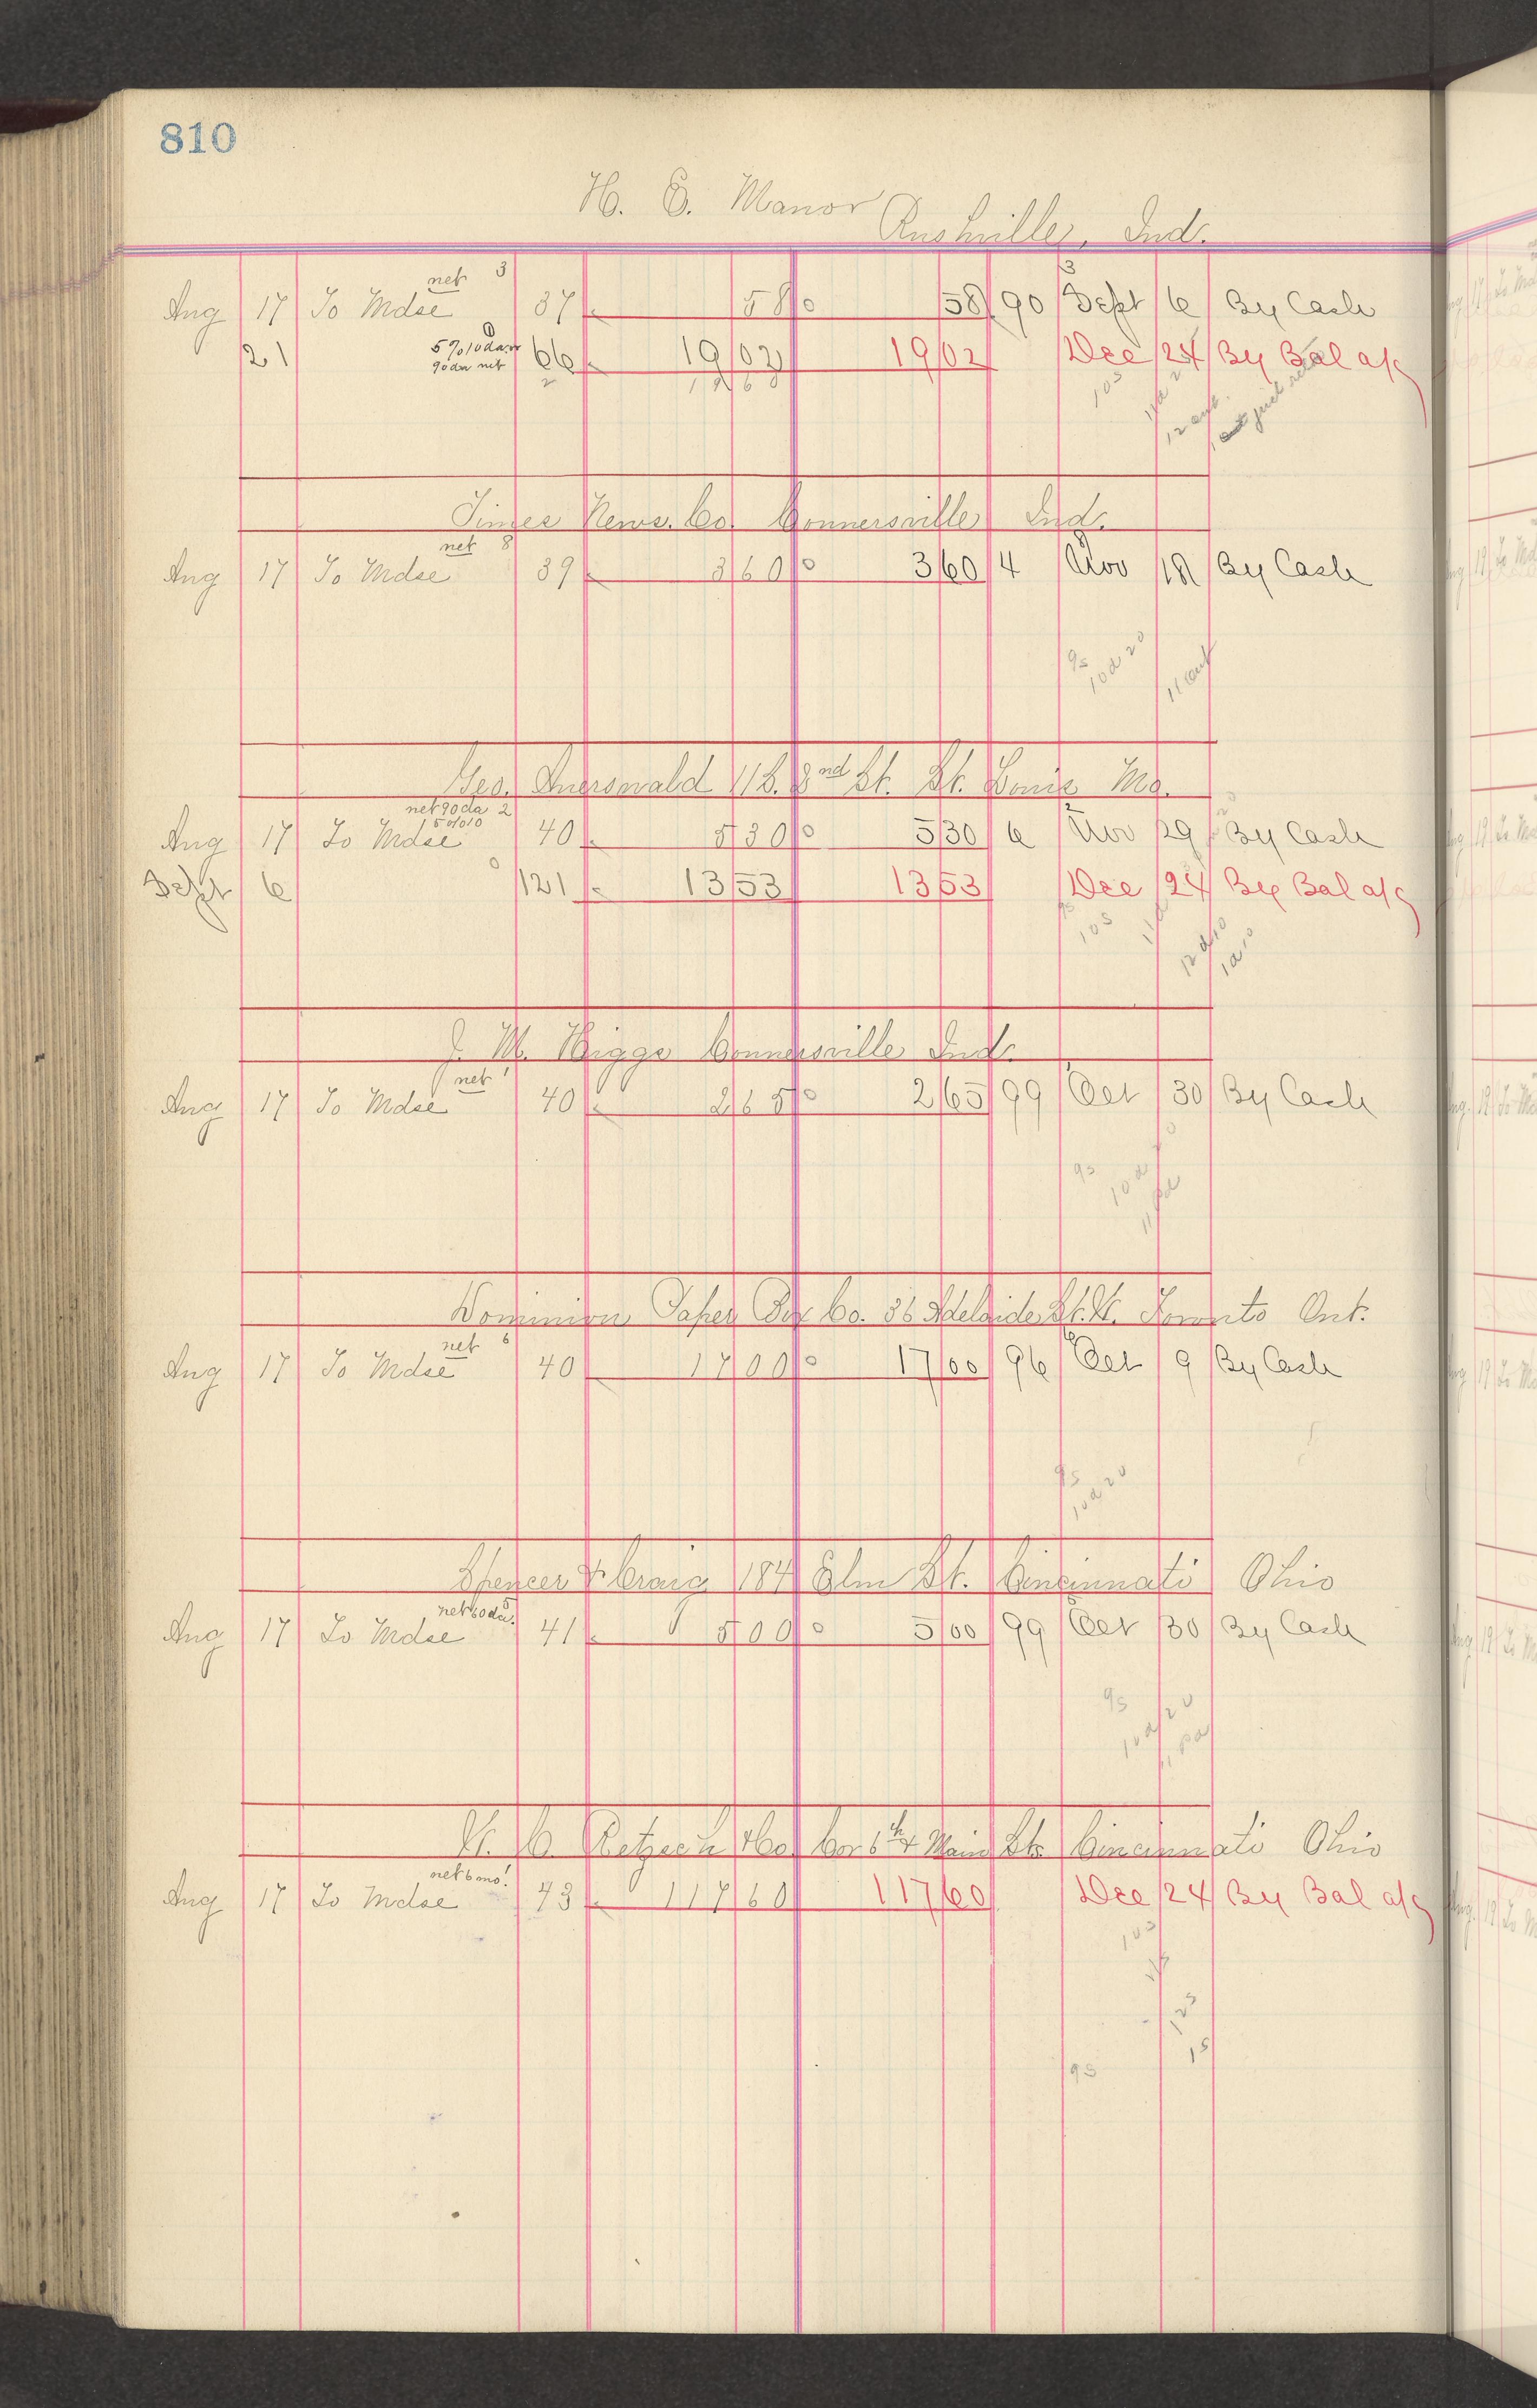 810
H. E. Manor
Rushville, Ind.
net 3 3
Aug 17 To Mdse 37 58 0 58 90 Sept 6 By Cash
21 5% 10 da or 66 19 02 19 02 Dec 24 By Bal a/c
90 da net 2 19 60
10s
Times News. Co. Connersville Ind.
net 8
Aug 17 To Mdse 39 3 60 0 3 60 4 Nov 18 By Cash
9s 10 d 20 11
Geo. Auerswald 118. 2nd St. St. Louis Mo.
net 90 da 2
1 5 % 10
Aug 17 To Mdse 40 5 30 0 5 30 6 Nov 29 By Cash
Sept 6 121 13 53 13 53 Dec 24 By Bal a/c
10s 12 d 10 1 d 10
J. M. Higgs Connersville Ind.
net 1
Aug 17 To Mdse 40 2 65 0 2 65 99 Oct 30 By Cash
9s 10 d 11 pd
Dominion Paper Box Co. 36 Adelaide St. W. Toronto Ont.
net 6
Aug 17 To Mdse 40 17 00 0 17 00 96 Oct 9 By Cash
9s 10 d 20
Spencer & Craig 184 Elm St. Cincinnati Ohio
net 60 da.
Aug 17 To Mdse 41 5 00 0 5 00 99 Oct 30 By Cash
9s 10 d 20 11 pd
Co Cor 6th & Main Sts Cincinnati Ohio
net 6 mo.
Aug 17 To Mdse 43 117 60 117 60 Dec 24 By Bal a/c
10s
12s
1s
9s